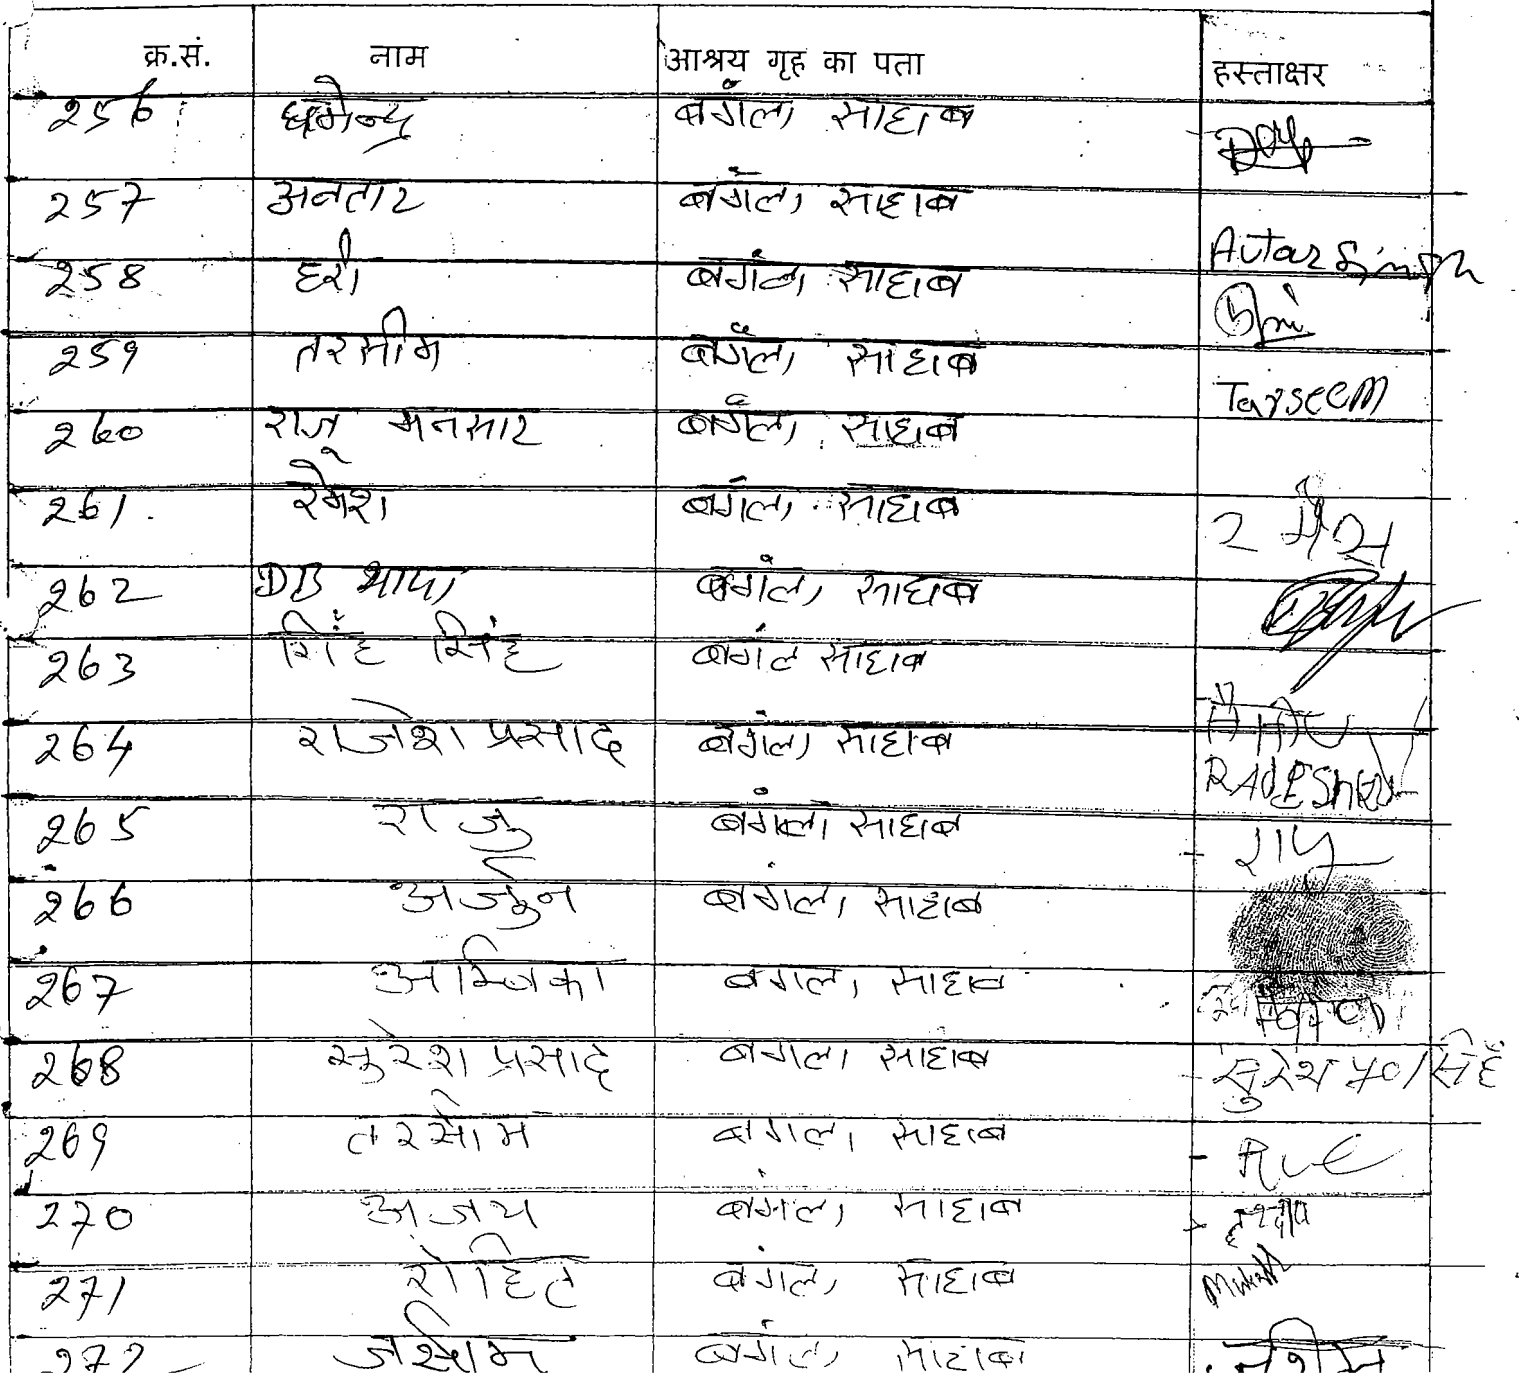 क्र.सं. नाम आश्रय गृह का पता हस्ताक्षर
256 धर्मेन्द्र बगंला साहाब
257 अवतार बगंला साहाब Avtar Singh
258 हरी बगंला साहाब
259 तरसीम बगंला साहाब Tarseem
260 राजू मनसार बगंला साहाब
261 रमेश बगंला साहाब
262 DB थापा बगंला साहाब
263 सिंह बगंल साहाब
264 राजेश प्रसाद बगंला साहाब
265 राजु बगंला साहाब राजु
266 अर्जुन बगंला साहाब
267 अम्बिका बगला साहाब
268 सुरेश प्रसाद बगला साहाब सुरेश
269 तरसीम बगला साहाब
270 अजय बगंला साहाब
271 रोहित बगंला साहाब
272 जसीम बगंला साहाब